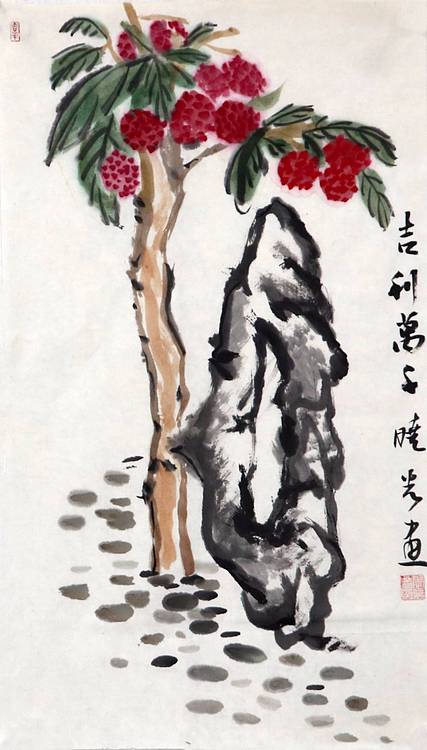 吉利萬千 曉光画